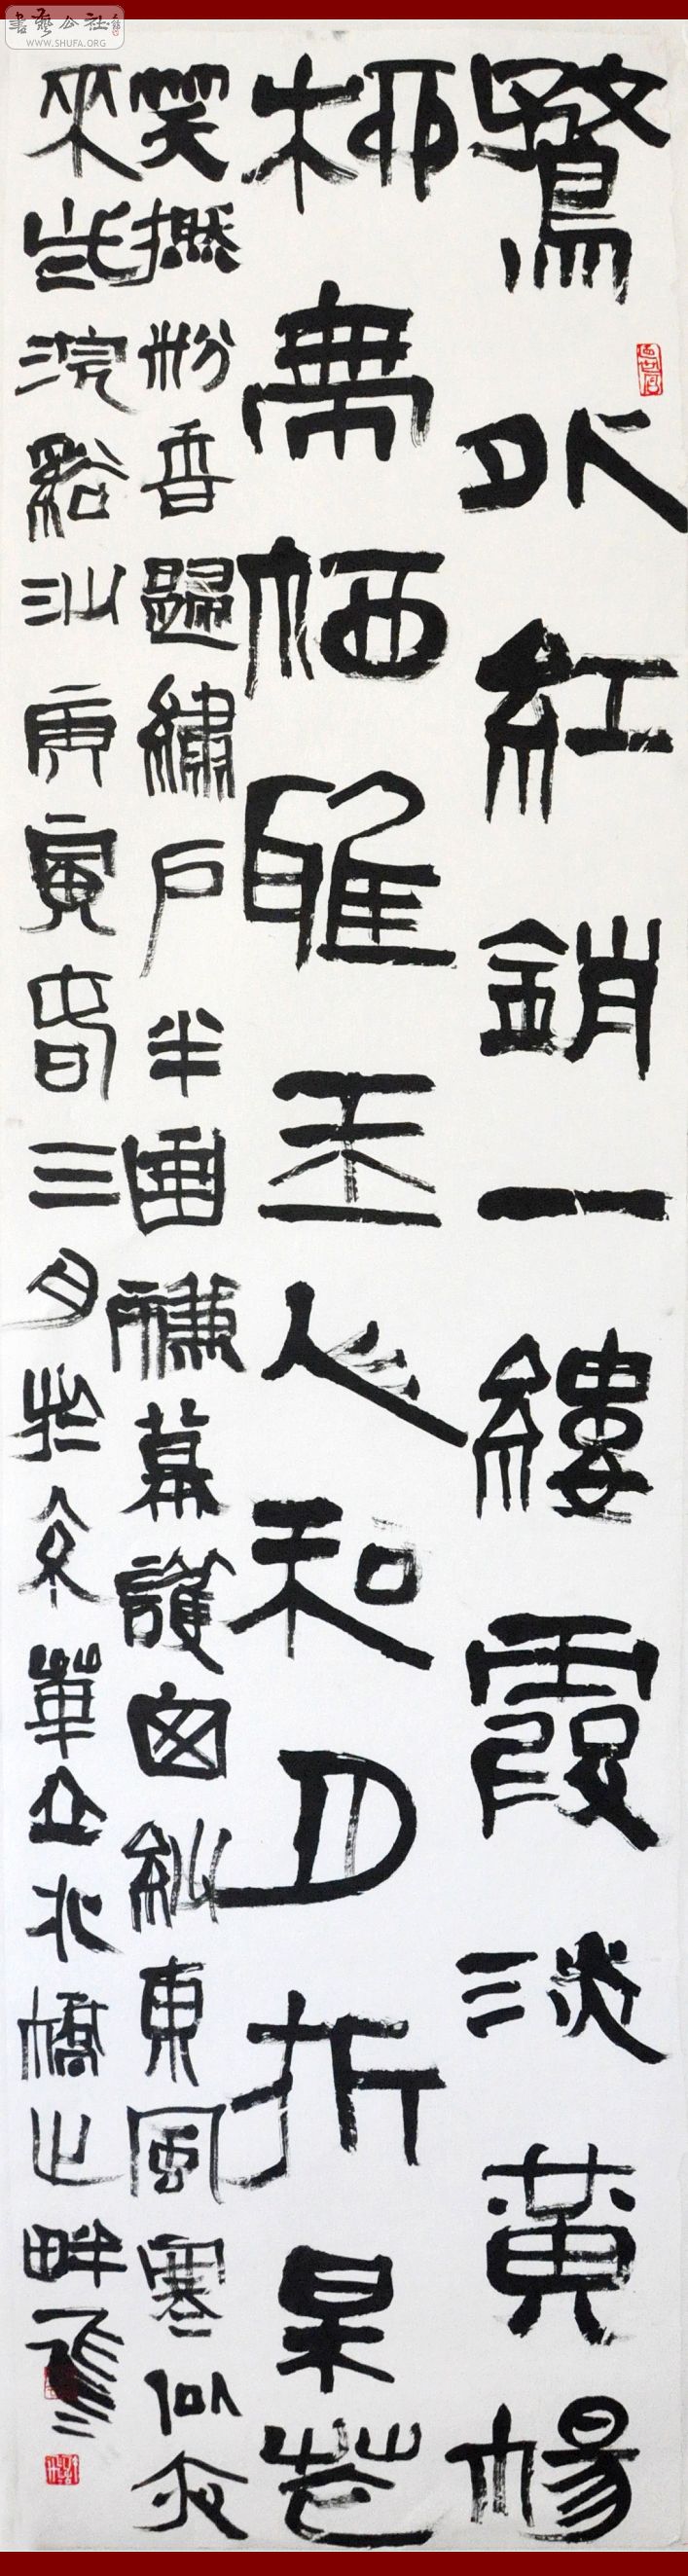 書藝公社
WWW.SHUFA.ORG
鶩外紅銷一縷霞淡黃楊
柳無栖雅玉人和月折呆花
笑撚粉香歸繡戶半垂簾幕護囪紗東風寒似夜
來些浣谿沙庚寅春三月於京華立北橋之畔